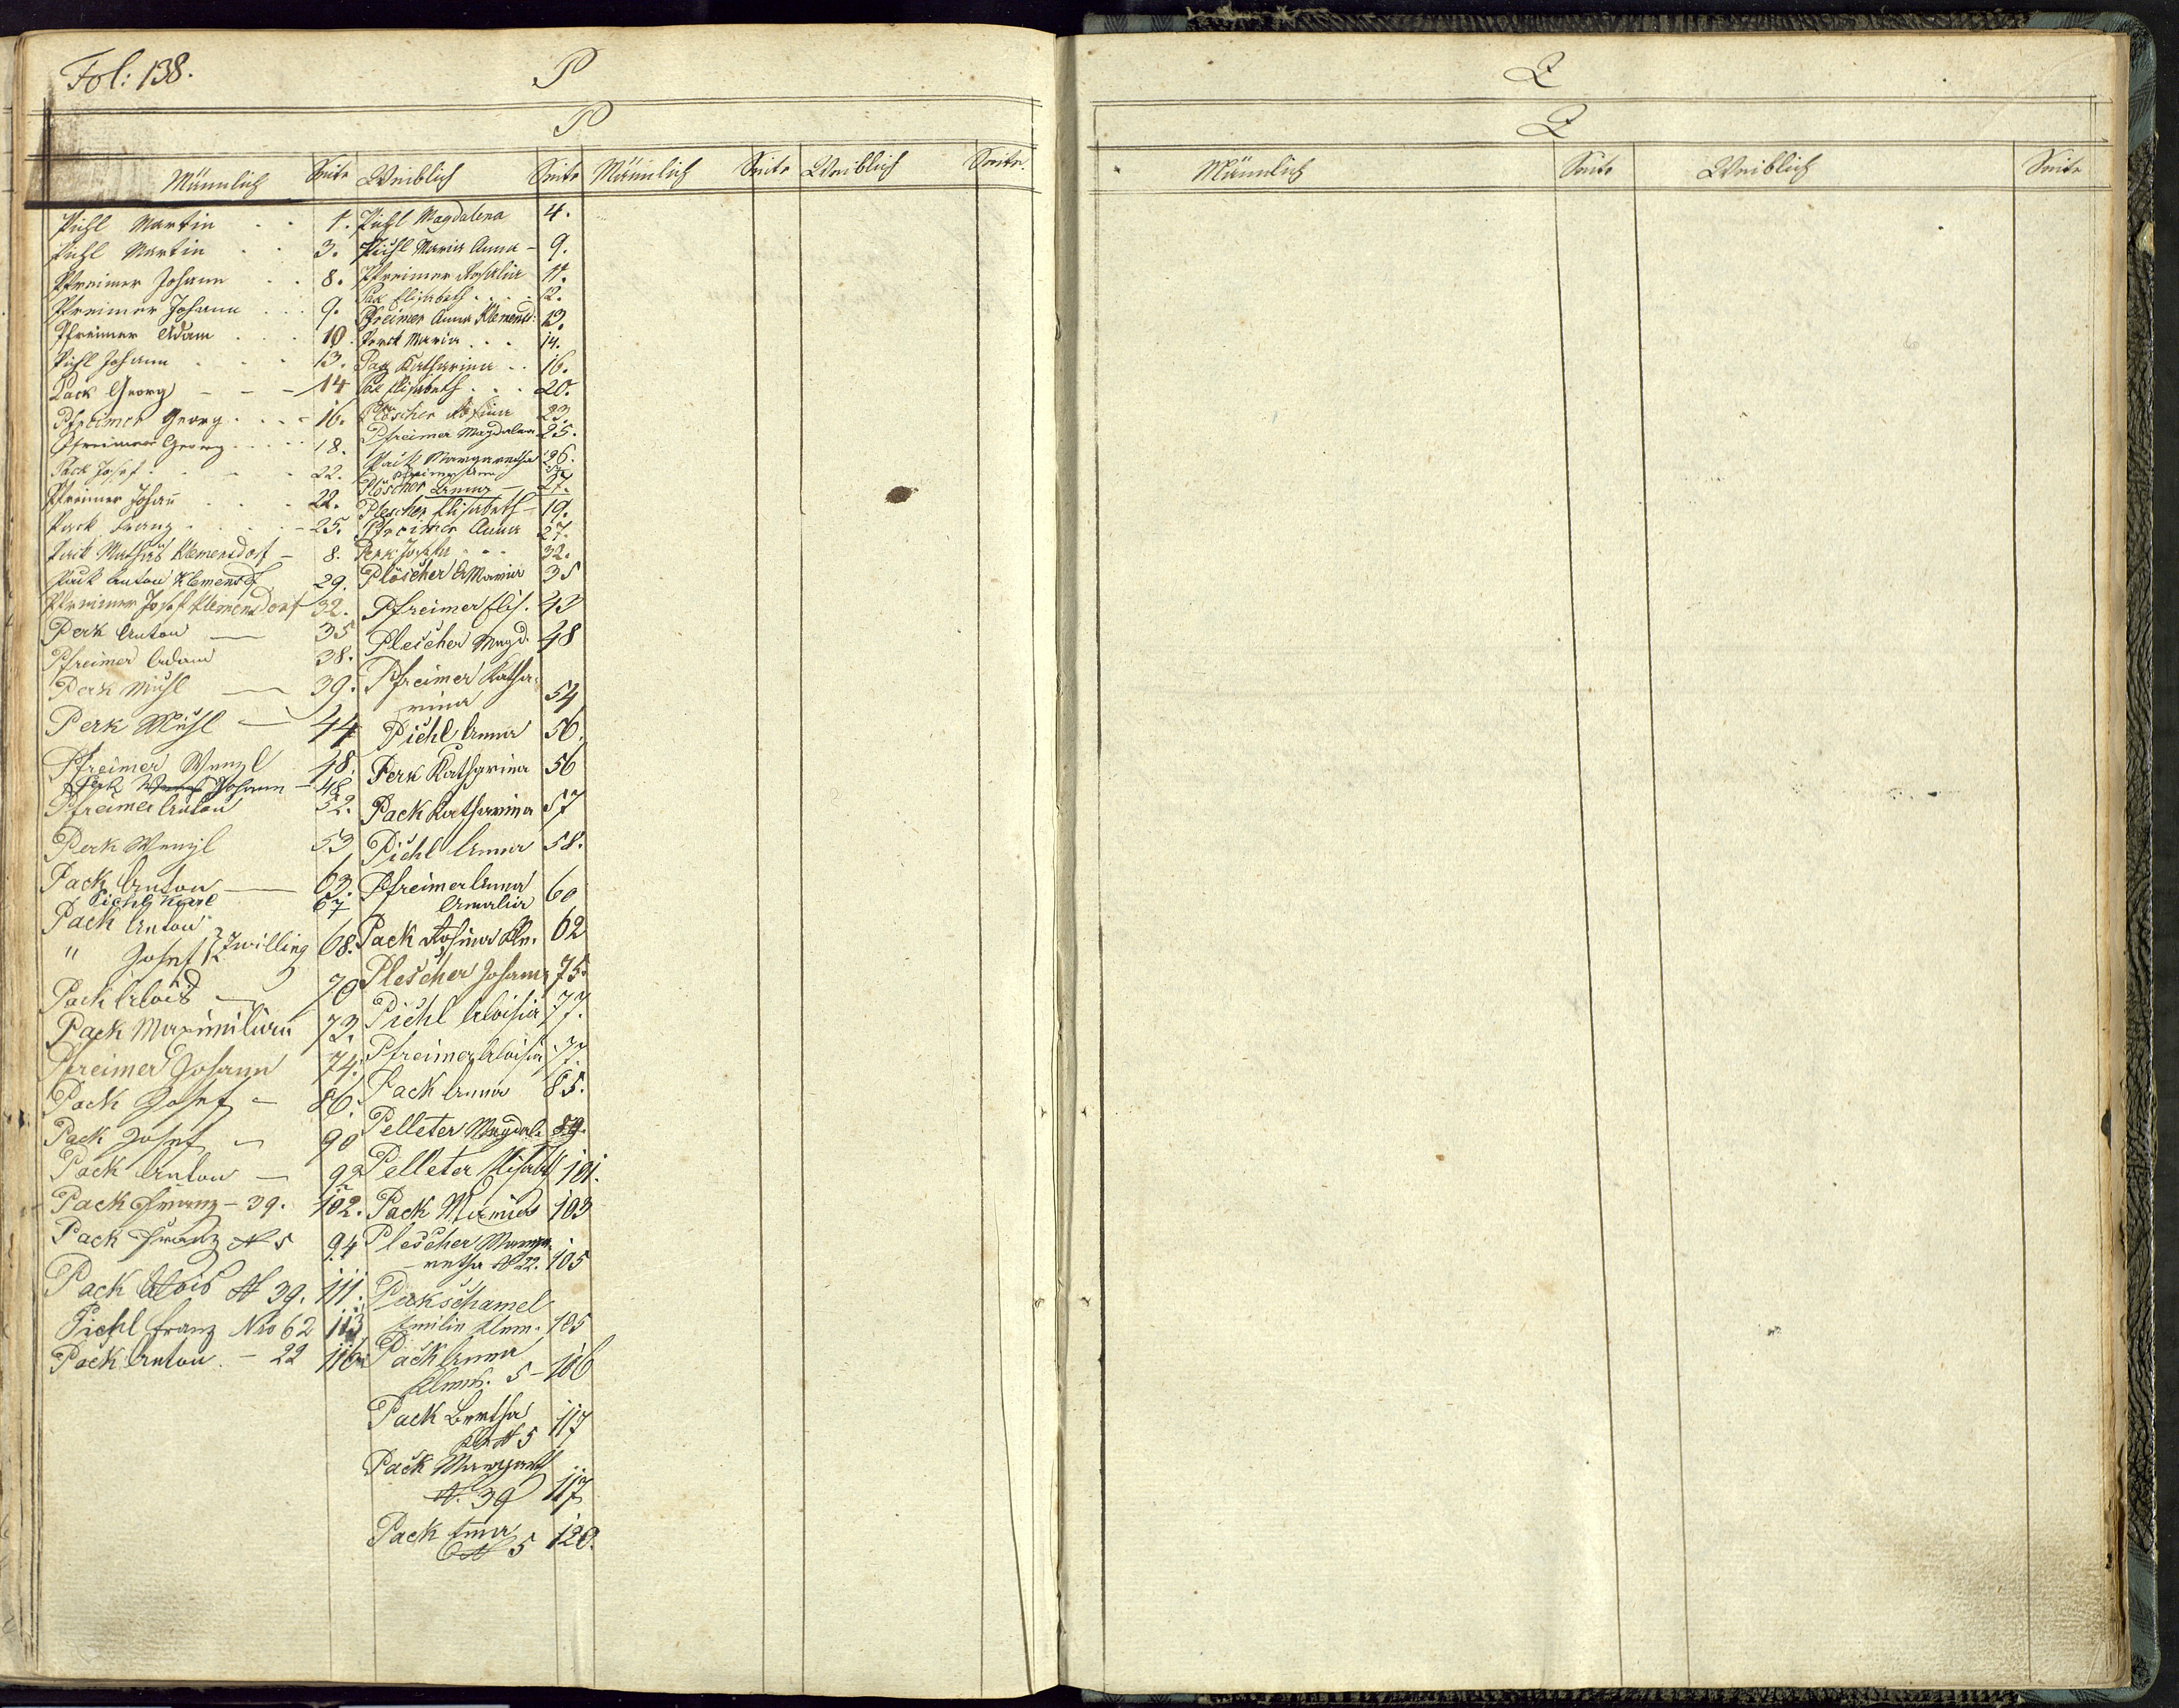 Fol: 138.
P
P
Männlich Seite Weiblich Seite Männlich Seite Weiblich Seite
Pichl Martin 1.
Pichl Martin 3.
Pfreimer Johann 8.
Pfreimer Johann 9.
Pfreimer Adam 10.
Pichl Johann 13.
Pack Georg 14
Pfreimer Georg 16.
Pfreimer Georg 18.
Pack Josef 22.
Pfreimer Johan̄ 22.
Pack Franz 25.
Mathias Klemensdorf 8.
Anton Klemensdf 29.
Pfreimer Josef Klemensdorf 32.
Perk Anton 35
Pfreimer Adam 38.
Perk Michl 39.
Perk Michl 44
Pfreimer Wenzl 48.
Perk Johann 48
Pfreimer Anton 52.
Perk Wenzl 53
Pack Anton 63.
Pichl Karl 67
Pack Anton
" Josef Zwilling 68.
Pack Alois 70
Pack Maximilian 73.
Pfreimer Johann 74.
Pack Josef 86.
Pack Josef 90
Pack Anton 92
Pack Franz - 39. 102.
Pack Franz N 5 94
Pack Alois N 39. 111.
Pichl Franz Nro 62 113
Pack Anton - 22 116
Pichl Magdalena 4.
Pichl Maria Anna 9.
Pfreimer Rosalia 11.
Pak Elisabeth 12.
Pfreimer Anna Klemensd: 13.
Maria 14.
Pak Katharina 16.
Pak Elisabeth 20.
Plöscher Rosina 23.
Pfreimer Magdalena 25.
Pack Margaretha 26.
Pfreimer Anna
Plöscher Anna 27.
Plescher Elisabeth 19.
Pfreimer Anna 27.
Perk Josefa 32.
Plöscher A Maria 35
Pfreimer Elis. 43
Plescher Magd. 48
Pfreimer Katha-
rina 54
Pichl Anna 56.
Perk Katharina 56
Pack Katharina 57
Pichl Anna 58.
Pfreimer Anna
Amalia 60
Pack Rosina Kln. 62
Plescher Johana 75.
Pichl Aloisia 77.
Pfreimer Aloisia 77.
Pack Anna 85.
Pelleter Magdal. 89.
Pelleter Elisabet 101.
Pack 103
Plescher Marga-
retha N 22. 105
Pekschamel
Emilie Klem. 105
Pack Anna
Klems. 5 - 106
Pack Bertha
Kl N 5 117
Pack Margareth
N. 39 117
Pack Emma
N 5 120.
Q
Q
Männlich Seite Weiblich Seite